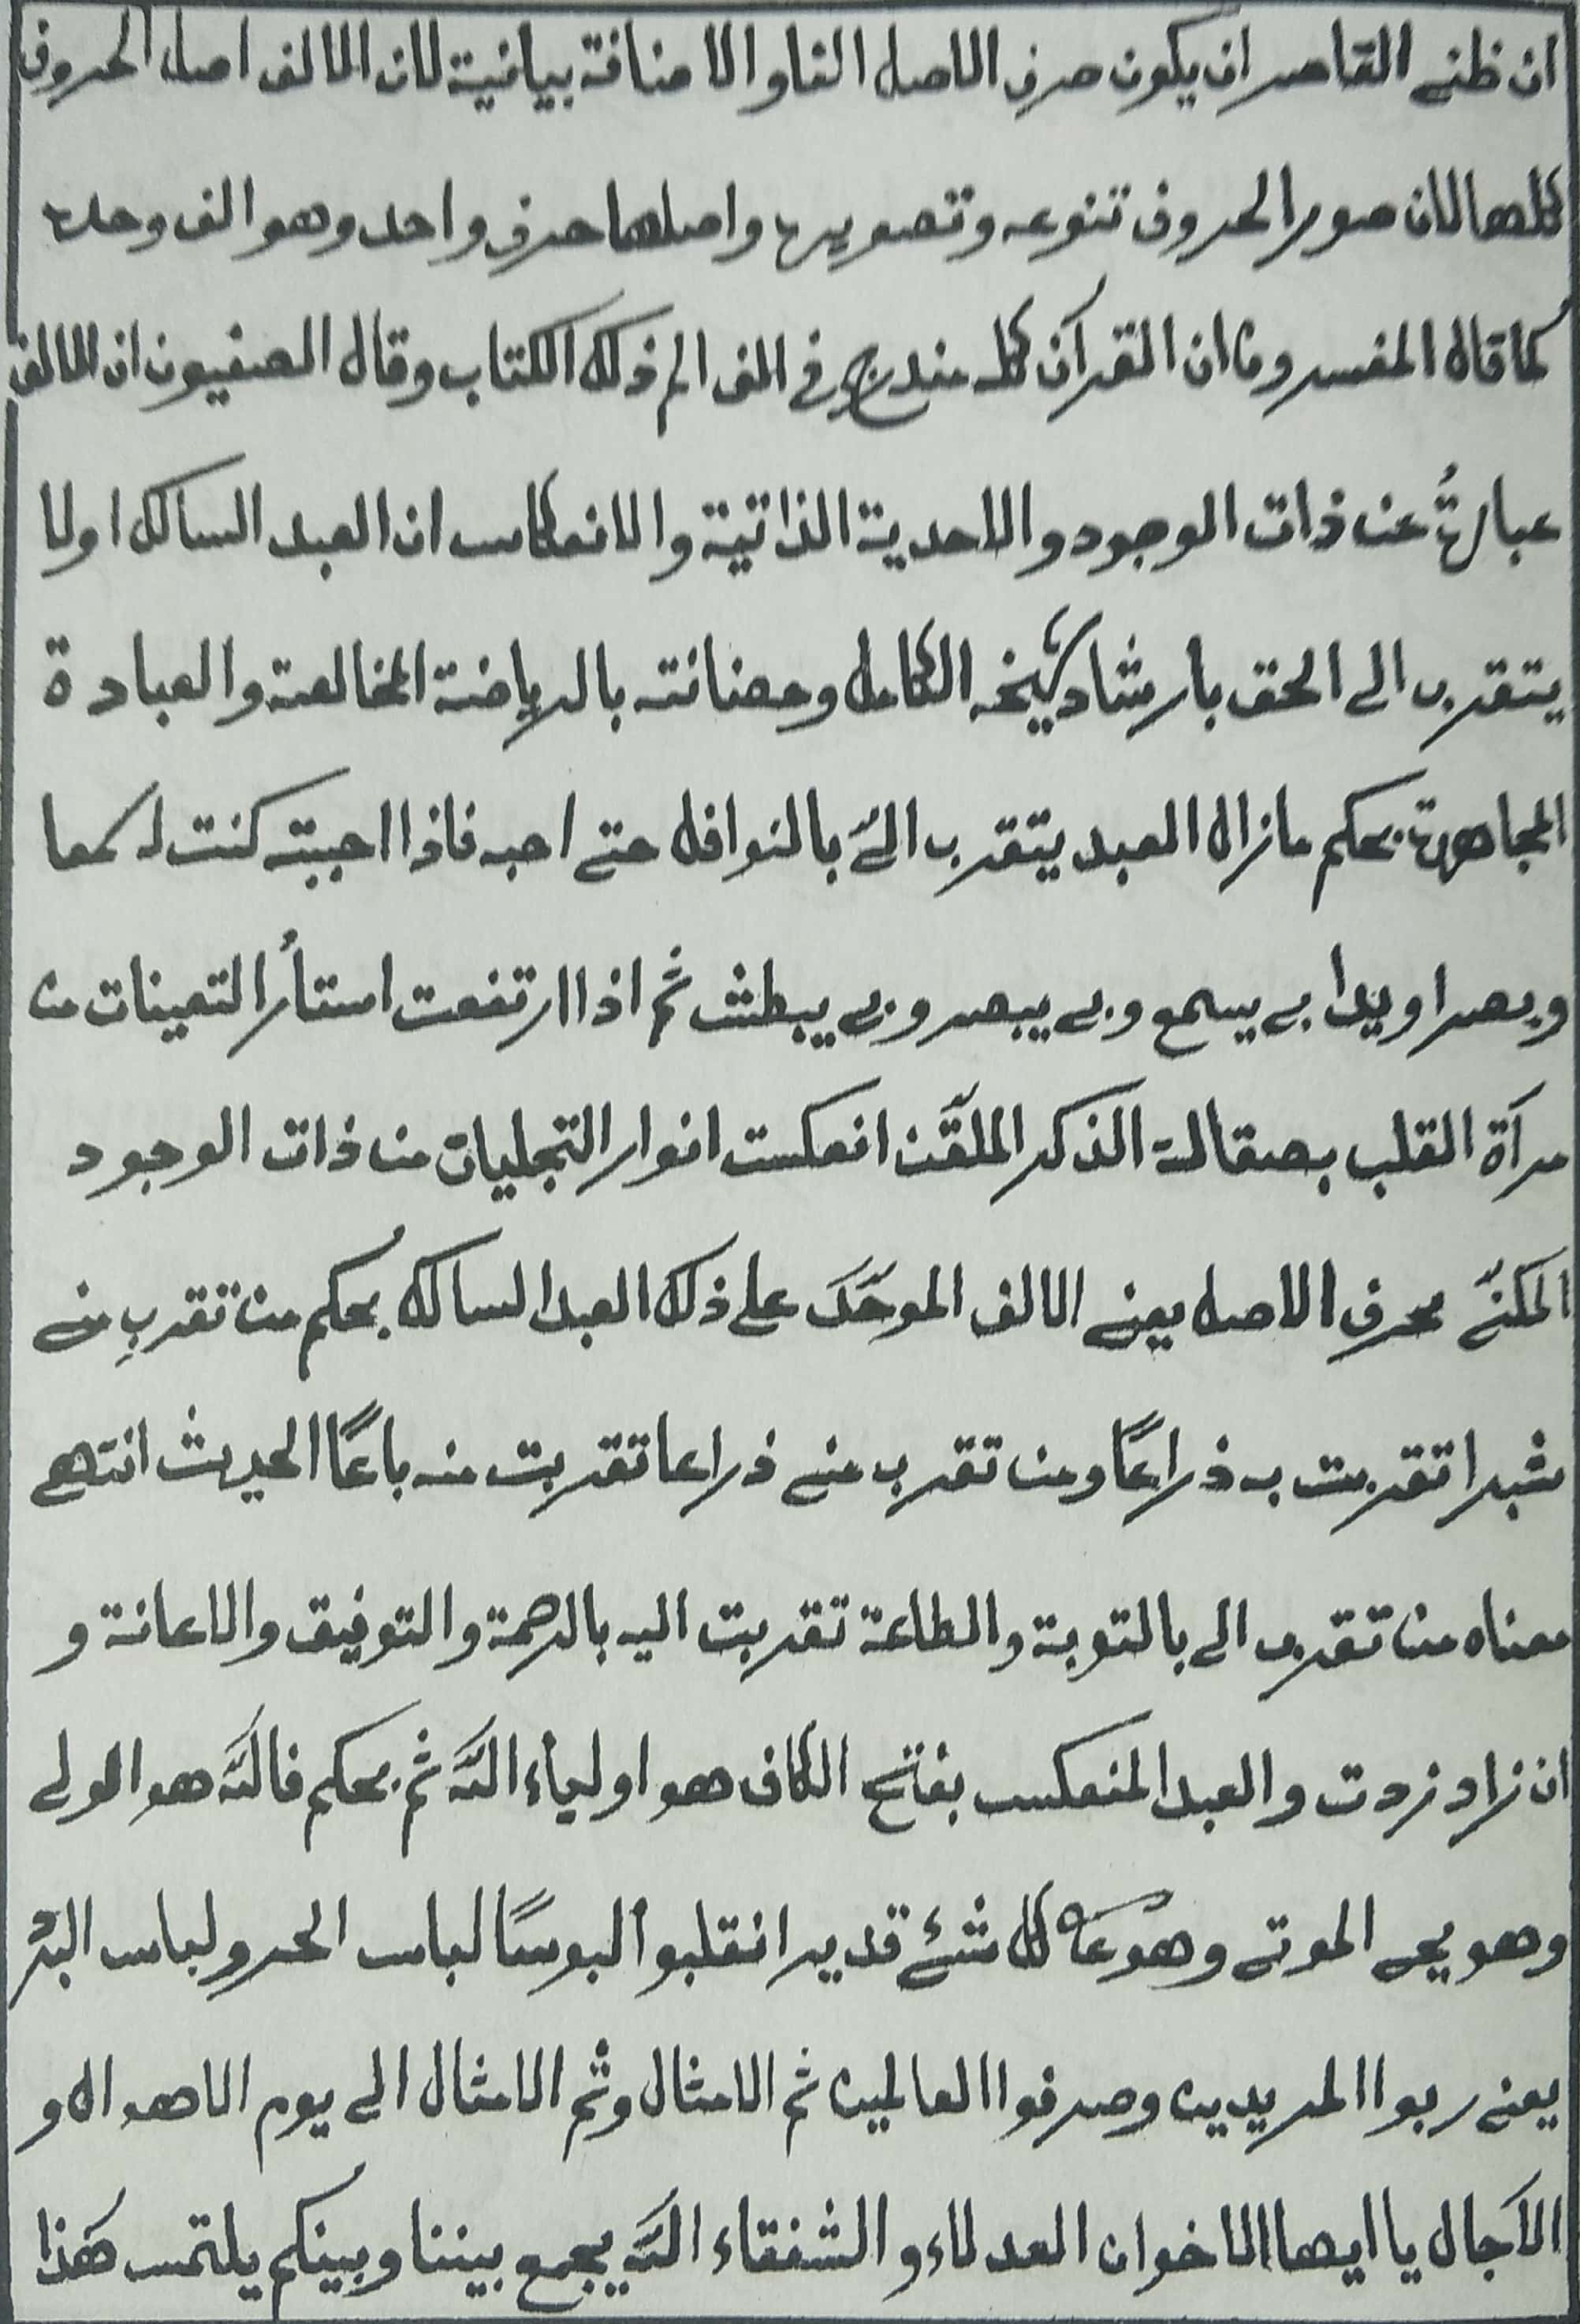 ان ظني القاصر ان يكون حرف الاصل الفا والاضافة بيانية لان الالف اصل الحروف
كلها لان صور الحروف تنوعه وتصويره واصلها حرف واحد وهو الف وحده
كما قال المفسرون ان القرآن كله مندرج في الف الم ذلك الكتاب وقال الصفيون ان الالف
عبارةُ عن ذات الوجود والاحدية الذاتية والانعكاس ان العبد السالك اولا
يتقرب الى الحق بارشاد شيخه الكامل وحضانته بالرياضة الخالصة والعبادة
المجاهدة بحكم مازال العبد يتقرب الىّ بالنوافل حتى احبه فاذا احببته كنت له سمعا
وبصرا ويدا بي يسمع وبي يبصر وبي يبطش ثم اذا ارتفعت استأر التعينات من
مرآة القلب بصقالة الذكر الملقَّن انعكست انوار التجليات من ذات الوجود
المكنّى بحرف الاصل يعني الالف الموحَّد على ذلك العبد السالك بحكم من تقربِ مني
شبرا تقربت به ذراعًا ومن تقرب مني ذراعا تقربت منه باعًا الحديث انتهى
معناه من تقرب الي بالتوبة والطاعة تقربت اليه بالرحمة والتوفيق والاعانة و
ان زاد زدت والعبد المنعكس بفتح الكاف هو اولياء الله ثم بحكم فالله هو الولي
وهو يحي الموتى وهو على كل شئ قدير انقلبوا لبوسًا لباس الحر ولباس البرّ
يعني ربوا المريدين وصرفوا العالمين ثم الامثال وثم الامثال الى يوم الاهوال و
الآجال يا ايها الاخوان العدلاء والشفقاء الله يجمع بيننا وبينكم يلتمس هَذا